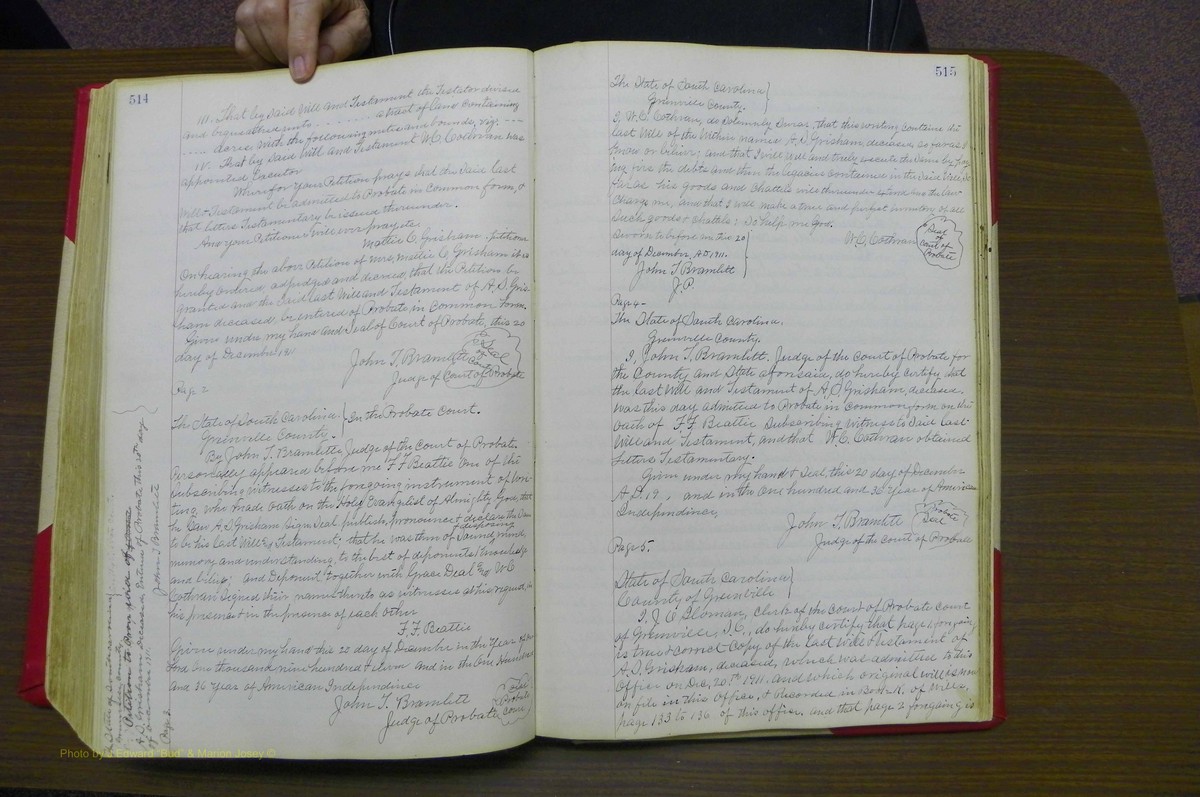 514
III. That by Said Will and Testament the Testator devised
and bequeathed unto - - - - a tract of land containing
- - - - acres, with the following metes and bounds, viz: - - -
IV. That by Said Will and Testament W.C. Cothran was
appointed Executor
Wherefor your Petition prays that the Said last
Will & Testament be admitted to Probate in Common form, &
that letters Testamentary be issued thereunder.
And your Petitioner will ever pray, etc
Mattie C. Grisham, petitioner
On hearing the above Petition of Mrs. Mattie C. Grisham it is
hereby ordered adjudged and decreed, that the Petition be
granted and the Said last Will and Testament of A.D. Gris-
ham deceased be entered of Probate in Common Form.
Given under my hand and Seal of Court of Probate, this 20
day of December 19
John T. Bramlett
Judge of Court of Probate
Seal
of
Court
Page 2
The State of South Carolina } In the Probate Court.
Grenville County.
By John T. Bramlette Judge of the Court of Probate
Personally appeared before me F F Beattie One of the
Subscribing witnesses to the foregoing instrument of Wri-
ting, who made oath on the Holy Evangelist of Almighty God, that
he Saw A.D. Grisham Sign Seal publish, pronounce & declare the Same
to be his last Will & Testament; that he was then of Sound, disposing mind,
memory and understanding, to the best of deponents knowledge
and belief; and Deponent together with Grace Deal and W C
Cothran Signed their names thereto as witnesses at his request, in
his presence & in the presence of each other
F. F. Beattie
Given under my hand this 20 day of December in the Year of our
Lord One thousand nine hundred & eleven and in the One Hundred
and 36 Year of American Independence
John T. Bramlett
Judge of Probate
Seal
Probate
Court
State of South Carolina
Greenville County
Petition to
A.D. Grisham deceased Entered of Probate this 20th day
of December 1911.
John T Bramlett
Page 3
515
The State of South Carolina }
Grenville County.
I, W.C. Cothran, do Solemnly Swear, that this writing contains the
last Will of the within named A.D. Grisham, deceased, so far as I
know or believe; and that I will well and truly execute the Same by pay-
ing first the debts and then the legacies contained in the Said Will, as
far as his goods and chattels will thereunto extend and the law
Charge me, and that I will make a true and perfect inventory of all
Such goods & chattels: So help me God.
Sworn to before me this 20
day of December, A.D. 1911.
W.C. Cothran
Seal
of
Court of
Probate
John T Bramlett
J.P.
Page 4-
The State of South Carolina.
Grenville County.
I, John T. Bramlitt, Judge of the Court of Probate for
the County and State aforesaid, do hereby certify that
the last Will and Testament of A.D. Grisham, deceased.
Was this day admitted to Probate in common form, on the
Oath of F F Beattie Subscribing Witness to Said last
Will and Testament, and that W.C. Cothran obtained
Letters Testamentary.
Given under my hand & Seal, this 20 day of December
A.D. 19 , and in the One hundred and 36 Year of American
Independence,
John T. Bramlett
Judge of the Court of Probate
Probate
Seal
Page 5.
State of South Carolina }
County of Grenville
I, J. C. Sloman, Clerk of the Court of Probate Court
of Grenville, S.C., do hereby certify that page 1 foregoing
is true & correct Copy of the Last Will & Testament of
A.D. Grisham, deceased, which was admitted to this
Office on Dec, 20th 1911. and which original will is now
on file in this Office, & recorded in Book K. of Wills,
page 133 to 136 of this office. and that page 2 foregoing is
Photo by: Edward "Bud" & Marion Josey ©